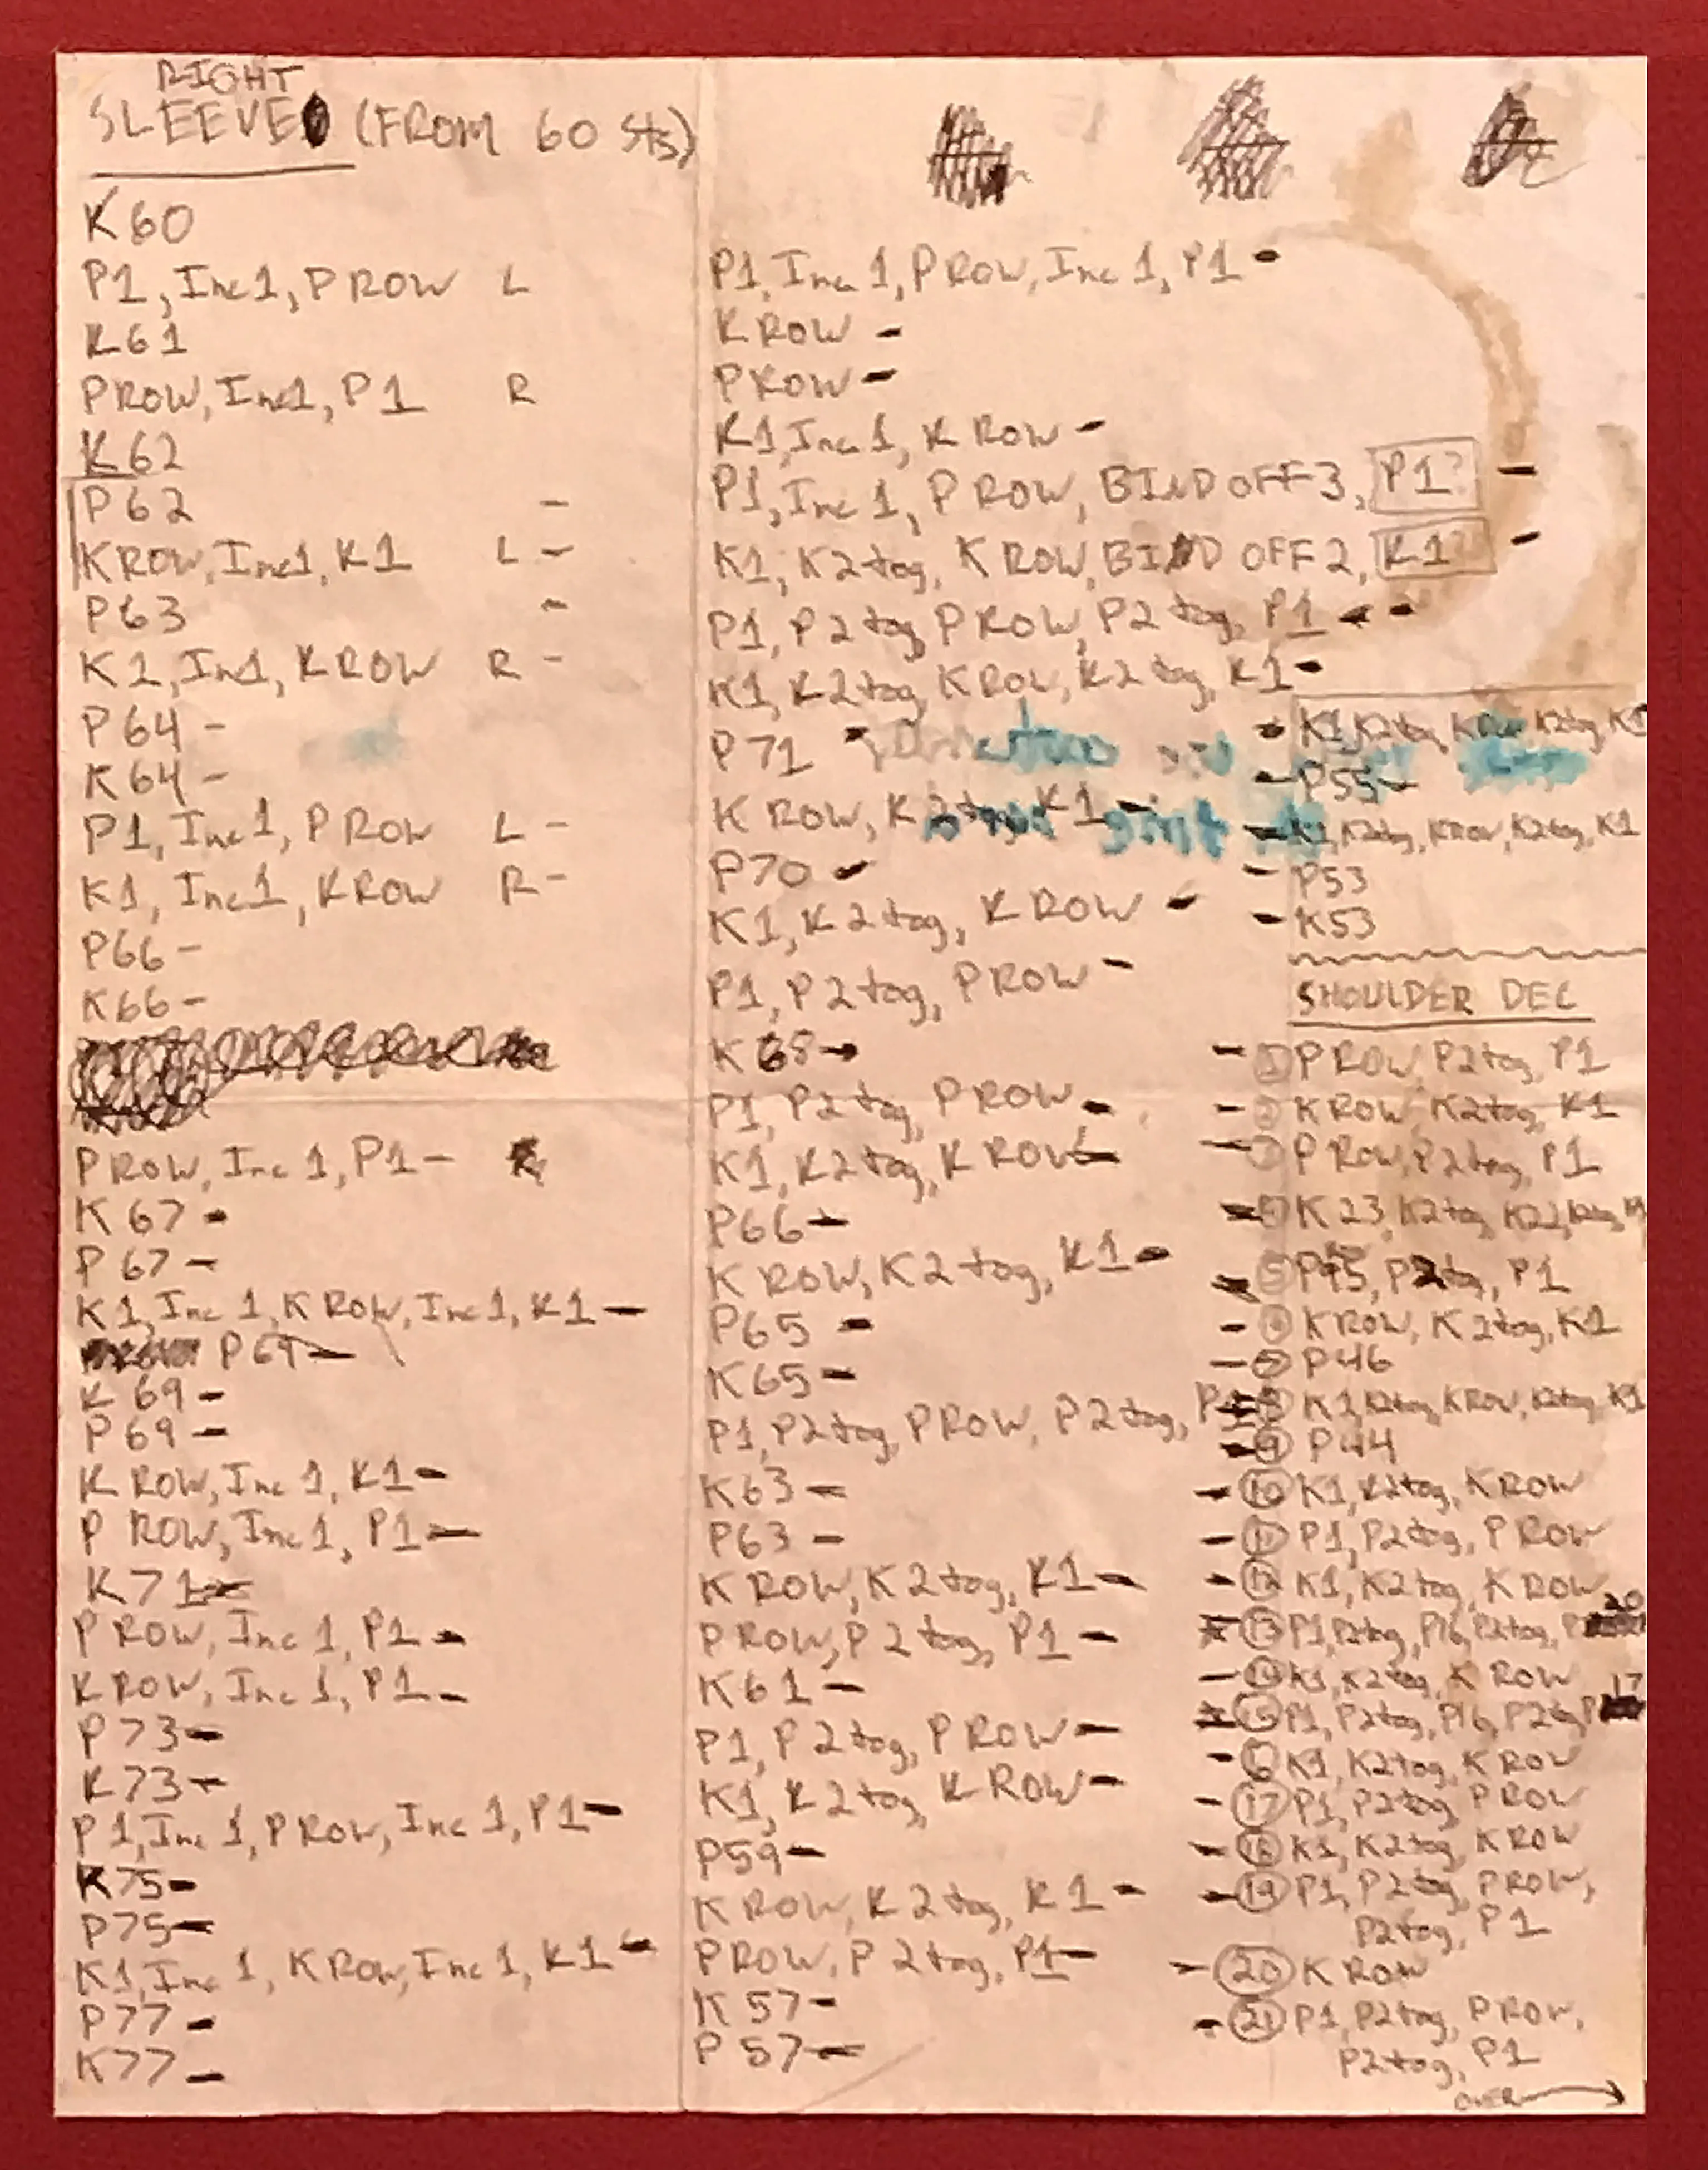 RIGHT
SLEEVE (FROM 60 Sts)
K60
P1, Inc1, P ROW L
K61
PROW, Inc1, P1 R
K62
P62 -
KROW, Inc1, K1 L -
P63 -
K1, Inc1, KROW R -
P64 -
K64 -
P1, Inc1, PROW L -
K1, Inc1, KROW R -
P66 -
K66 -
PROW, Inc1, P1 -
K67 -
P67 -
K1, Inc1, KROW, Inc1, K1 -
P69 -
K69 -
P69 -
K ROW, Inc1, K1 -
P ROW, Inc1, P1 -
K71 -
P ROW, Inc1, P1 -
KROW, Inc1, P1 -
P73 -
K73 -
P1, Inc1, PROW, Inc1, P1 -
K75 -
P75 -
K1, Inc1, KROW, Inc1, K1 -
P77 -
K77 -
P1, Inc1, PROW, Inc1, P1 -
KROW -
PROW -
K1, Inc1, KROW -
P1, Inc1, PROW, BIND OFF 3, P1? -
K1, K2tog, KROW, BIND OFF 2, K1? -
P1, P2tog, PROW, P2tog, P1 - -
K1, K2tog, KROW, K2tog, K1 -
P71 -
K ROW, K2tog, K1 -
P70 -
K1, K2tog, KROW -
P1, P2tog, PROW -
K68 -
P1, P2tog, PROW -
K1, K2tog, KROW -
P66 -
K ROW, K2tog, K1 -
P65 -
K65 -
P1, P2tog, PROW, P2tog,
K63 -
P63 -
K ROW, K2tog, K1 -
PROW, P2tog, P1 -
K61 -
P1, P2tog, PROW -
K1, K2tog, KROW -
P59 -
KROW, K2tog, K1 -
PROW, P2tog, P1 -
K57 -
P57 -
- K1, K2tog, KROW, K2tog, K1
- P55 -
- K1, K2tog, KROW, K2tog, K1
- P53
- K53
SHOULDER DEC
- 1 PROW, P2tog, P1
- 2 KROW, K2tog, K1
- 3 PROW, P2tog, P1
- 4 K23, K2tog, K22, K2tog,
- 5 P2tog, P1
- 6 KROW, K2tog, K1
- 7 P46
- 8 K1, K2tog, KROW, K2tog, K1
- 9 P44
- 10 K1, K2tog, KROW
- 11 P1, P2tog, PROW
- 12 K1, K2tog, KROW
- 13 P1, P2tog, P16, P2tog, P 20
- 14 K1, K2tog, KROW
- 15 P1, P2tog, P16, P2tog, P 17
- 16 K1, K2tog, KROW
- 17 P1, P2tog, PROW
- 18 K1, K2tog, KROW
- 19 P1, P2tog, PROW,
P2tog, P1
- 20 KROW
- 21 P1, P2tog, PROW,
P2tog, P1
OVER